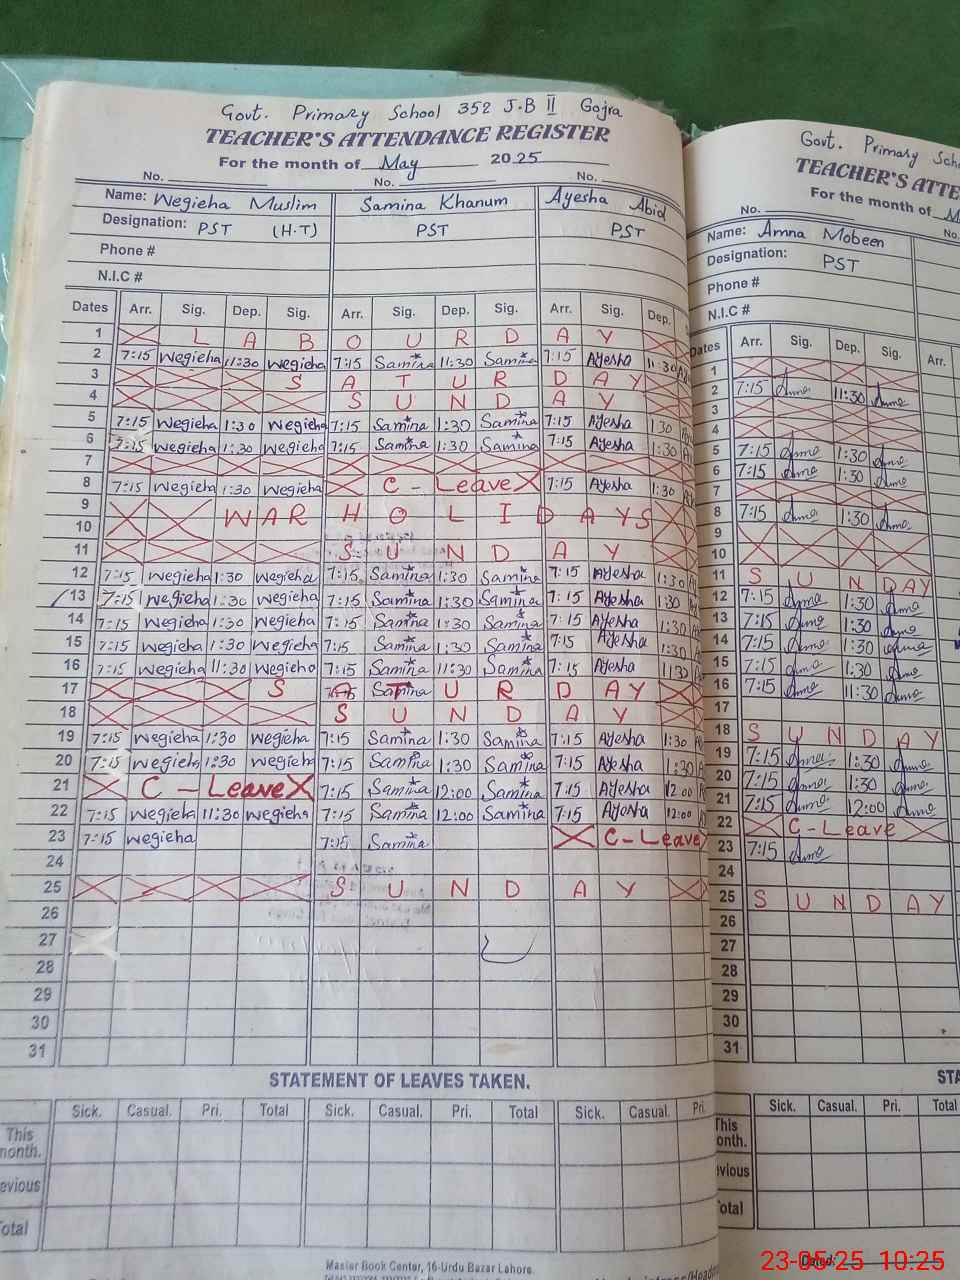 Govt. Primary School 352 J.B II Gojra
TEACHER'S ATTENDANCE REGISTER
For the month of May 2025
No. No. No.
Name: Wegieha Muslim Samina Khanum Ayesha Abid
Designation: PST (H.T) PST PST
Phone #
N.I.C #
Dates Arr. Sig. Dep. Sig. Arr. Sig. Dep. Sig. Arr. Sig. Dep.
1 L A B O U R D A Y
2 7:15 Wegieha 11:30 Wegieha 7:15 Samina 11:30 Samina 7:15 Ayesha 11:30
3 S A T U R D A Y
4 S U N D A Y
5 7:15 Wegieha 1:30 Wegieha 7:15 Samina 1:30 Samina 7:15 Ayesha 1:30
6 7:15 Wegieha 1:30 Wegieha 7:15 Samina 1:30 Samina 7:15 Ayesha 1:30
7
8 7:15 Wegieha 1:30 Wegieha C - Leave 7:15 Ayesha 1:30
9
10 WAR H O L I D A Y S
11 S U N D A Y
12 7:15 Wegieha 1:30 Wegieha 7:15 Samina 1:30 Samina 7:15 Ayesha 1:30
13 7:15 Wegieha 1:30 Wegieha 7:15 Samina 1:30 Samina 7:15 Ayesha 1:30
14 7:15 Wegieha 1:30 Wegieha 7:15 Samina 1:30 Samina 7:15 Ayesha 1:30
15 7:15 Wegieha 1:30 Wegieha 7:15 Samina 1:30 Samina 7:15 Ayesha 1:30
16 7:15 Wegieha 11:30 Wegieha 7:15 Samina 11:30 Samina 7:15 Ayesha 11:30
17 S A T U R D A Y
18 S U N D A Y
19 7:15 Wegieha 1:30 Wegieha 7:15 Samina 1:30 Samina 7:15 Ayesha 1:30
20 7:15 Wegieha 1:30 Wegieha 7:15 Samina 1:30 Samina 7:15 Ayesha 1:30
21 C - Leave 7:15 Samina 12:00 Samina 7:15 Ayesha 12:00
22 7:15 Wegieha 11:30 Wegieha 7:15 Samina 12:00 Samina 7:15 Ayesha 12:00
23 7:15 Wegieha 7:15 Samina C-Leave
24
25 S U N D A Y
26
27
28
29
30
31
STATEMENT OF LEAVES TAKEN.
Sick. Casual. Pri. Total Sick. Casual. Pri. Total Sick. Casual. Pri.
This
month.
Total
Master Book Center, 16-Urdu Bazar Lahore.
Govt. Primary
TEACHER'S
For the month of
No. No.
Name: Amna Mobeen
Designation: PST
Phone #
N.I.C #
Dates Arr. Sig. Dep. Sig. Arr.
1
2 7:15 Amna 11:30 Amna
3
4
5 7:15 Amna 1:30 Amna
6 7:15 Amna 1:30 Amna
7
8 7:15 Amna 1:30 Amna
9
10
11 S U N D A Y
12 7:15 Amna 1:30 Amna
13 7:15 Amna 1:30 Amna
14 7:15 Amna 1:30 Amna
15 7:15 Amna 1:30 Amna
16 7:15 Amna 11:30 Amna
17
18 S U N D A Y
19 7:15 Amna 1:30 Amna
20 7:15 Amna 1:30 Amna
21 7:15 Amna 12:00 Amna
22 C - Leave
23 7:15 Amna
24
25 S U N D A Y
26
27
28
29
30
31
Sick. Casual. Pri. Total
Dated:
23-05-25 10:25